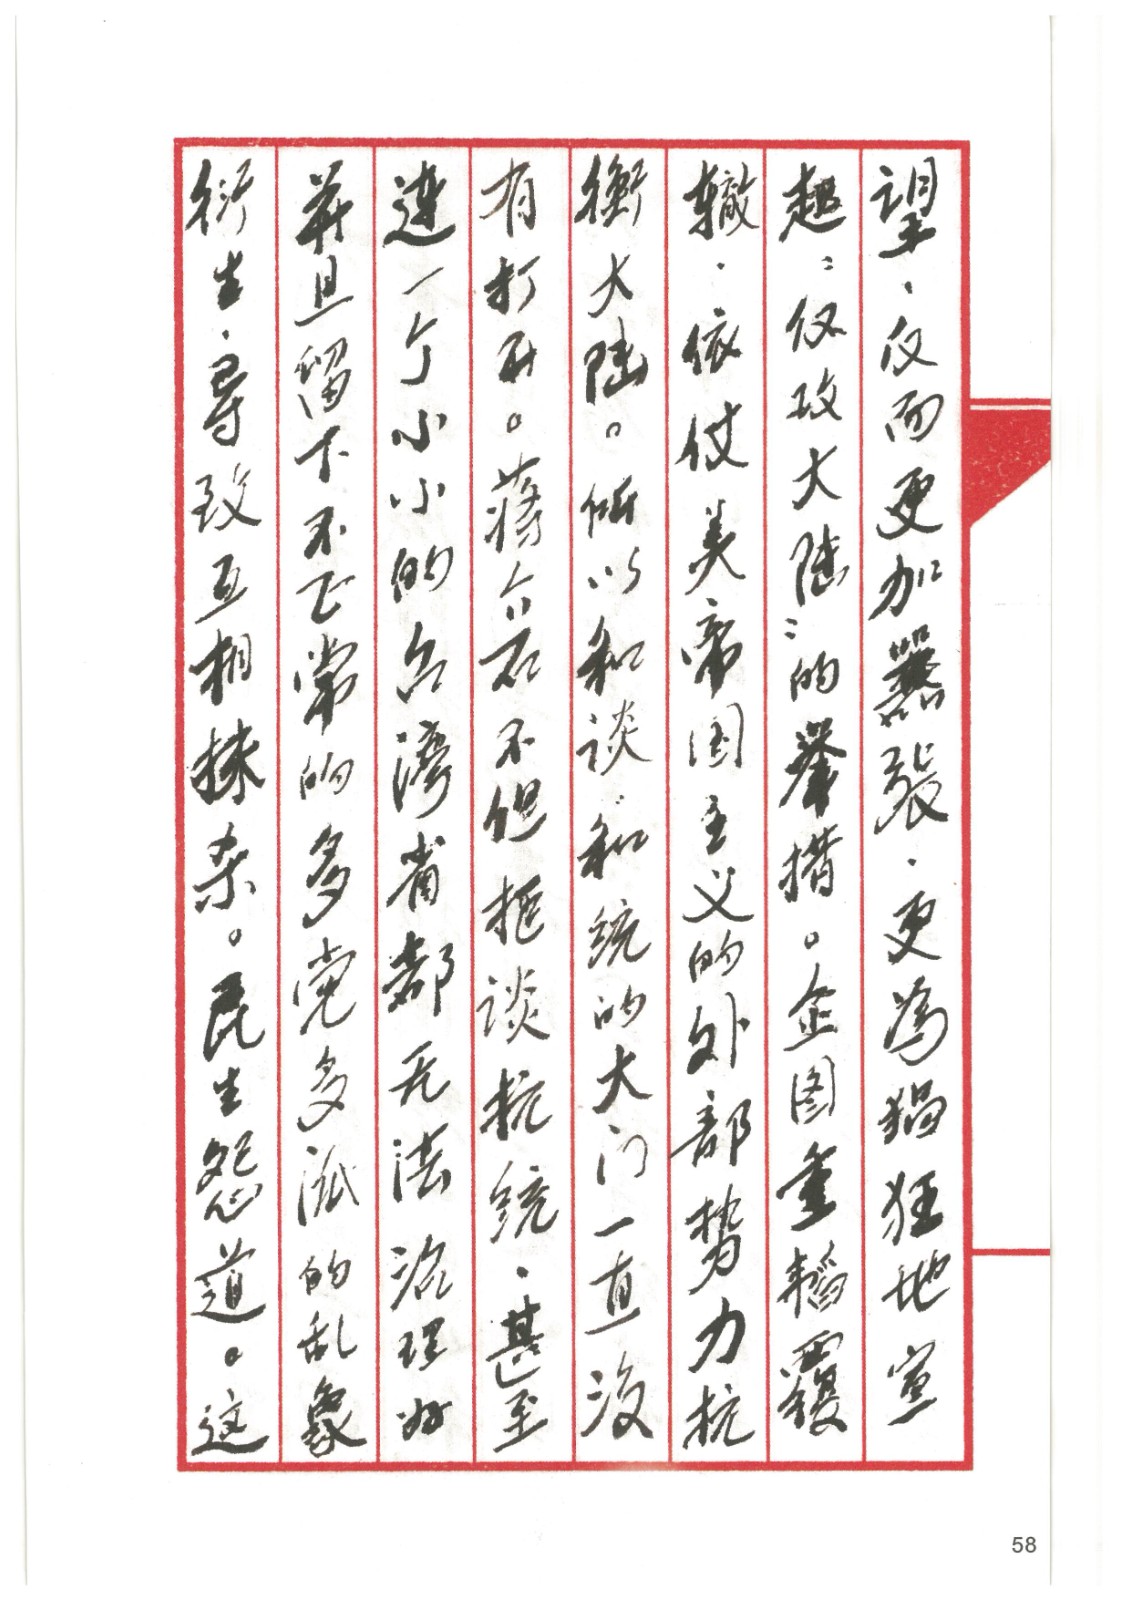 望，反而更加嚣張，更為猖狂地宣
趣："反攻大陆"的举措。企图重蹈覆
辙，依仗美帝国主义的外部势力抗
衡大陆。所以和谈、和统的大门一直没
有打开。蒋介石不但拒谈抗统，甚至
连一个小小的台湾省都无法治理好
并且留下不正常的多党多派的乱象
衍生，导致互相抹杀。民生怨道。这
58